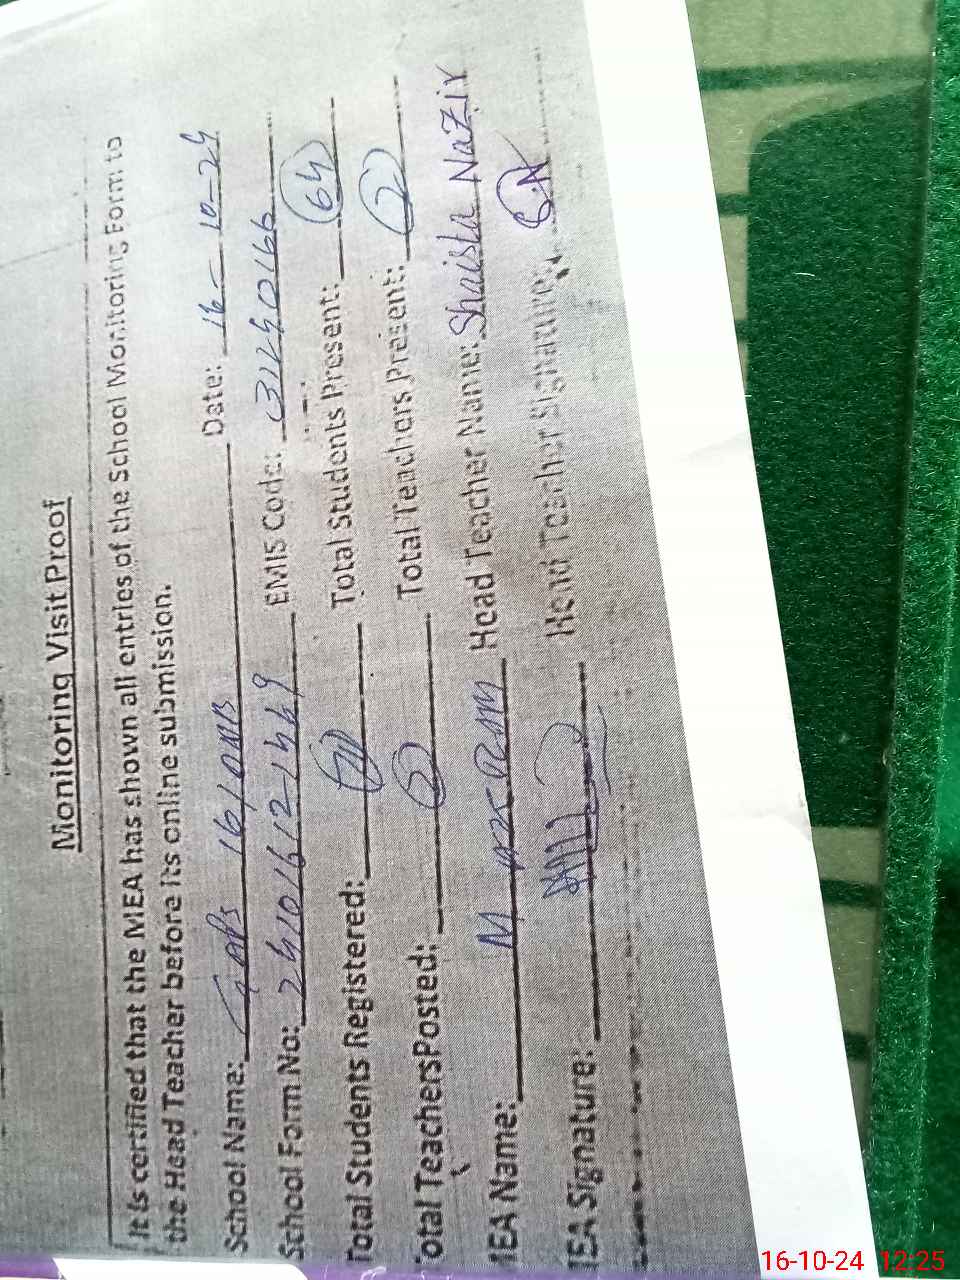 Monitoring Visit Proof
It is certified that the MEA has shown all entries of the School Monitoring Form to
the Head Teacher before its online submission.
School Name: GGPS 16/ Date: 16-10-24
School Form No: EMIS Code: 31240166
Total Students Registered: Total Students Present: 64
Total Teachers Posted: 2 Total Teachers Present: 2
MEA Name: M Head Teacher Name: Shaista Nazir
MEA Signature: Head Teacher Signature: S.N
16-10-24 12:25